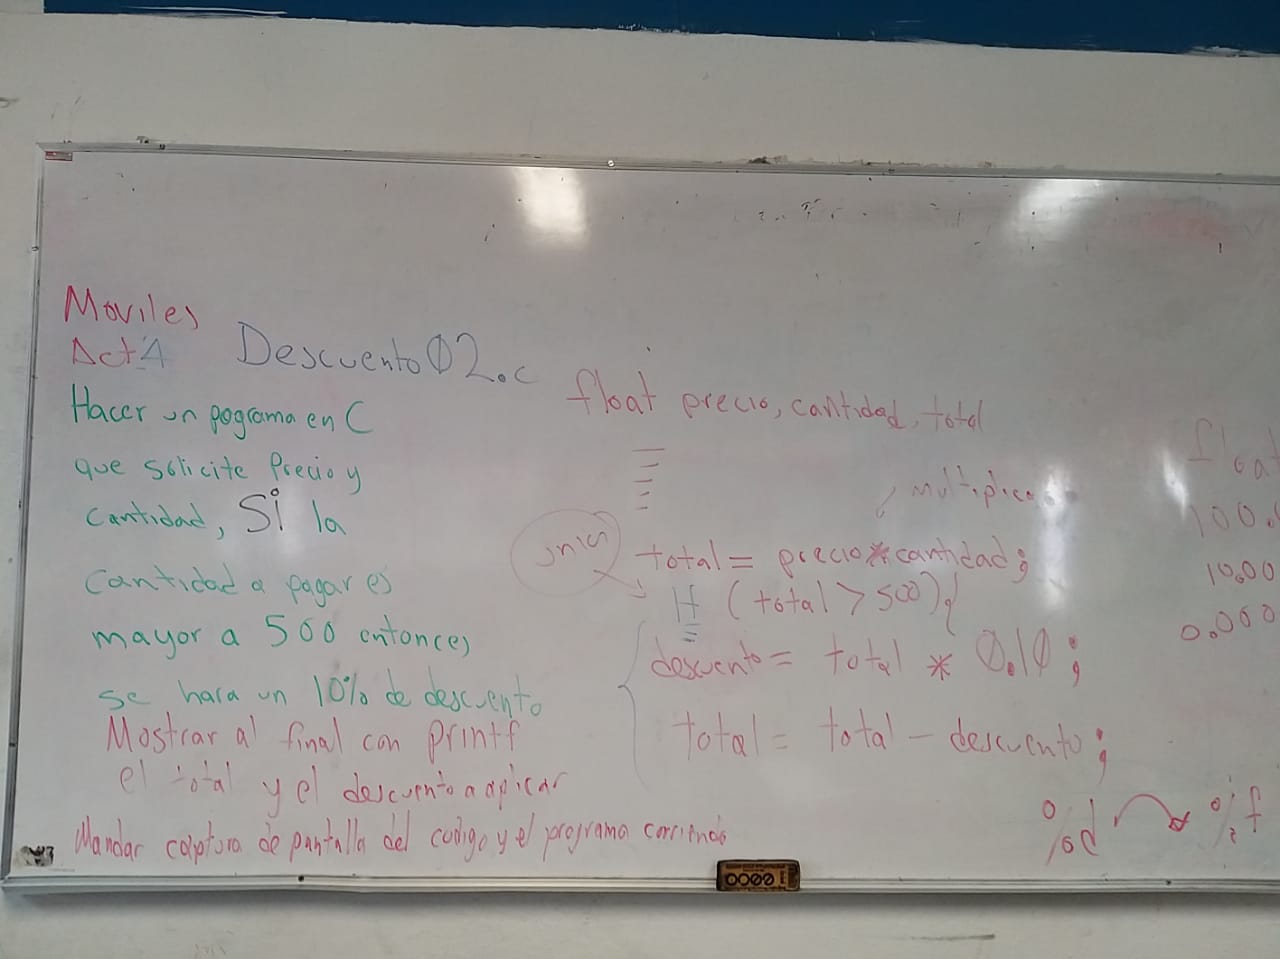 Moviles
Act 4 Descuento02.c
Hacer un pograma en C
que solicite Precio y
cantidad, Si la
cantidad a pagar es
mayor a 500 entonces
se hara un 10% de descuento
Mostrar al final con printf
el total y el descuento a aplicar
Mandar captura de pantalla del codigo y el programa corriendo
float precio, cantidad, total
total = precio * cantidad;
If (total > 500){
descuento = total * 0.10;
total = total - descuento;
%d %f
float
100.
10.00
0.000